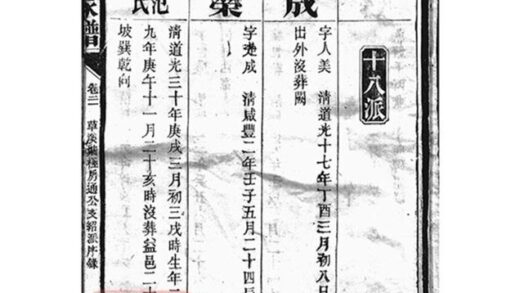 十八派
字人美 清道光十七年丁酉三月初八日
出外沒葬闕
成
字兆成 清咸豐二年壬子五月二十四辰
榮
清道光三十年庚戌三月初三戌時生年二
九年庚午十一月二十亥時沒葬益邑二十
坡巽乾向
范氏
家譜
卷二 支紹派序錄